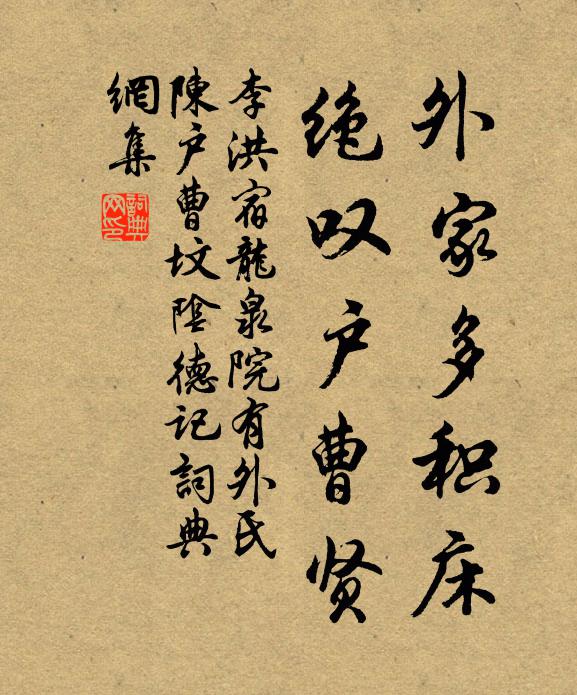 外家多积床
绝叹户曹贤
李洪宿龍泉院有外氏
陳户曹坟陰德记詞典
網集
詞典网印